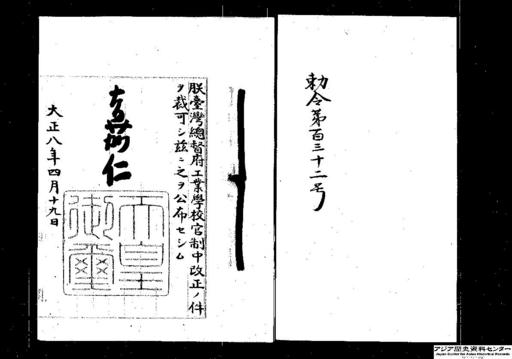 勅令第百三十二号
朕臺灣總督府工業學校官制中改正ノ件
ヲ裁可シ茲ニ之ヲ公布セシム
嘉仁
天皇
御璽
大正八年四月十九日
アジア歴史資料センター
Japan Center for Asian Historical Records